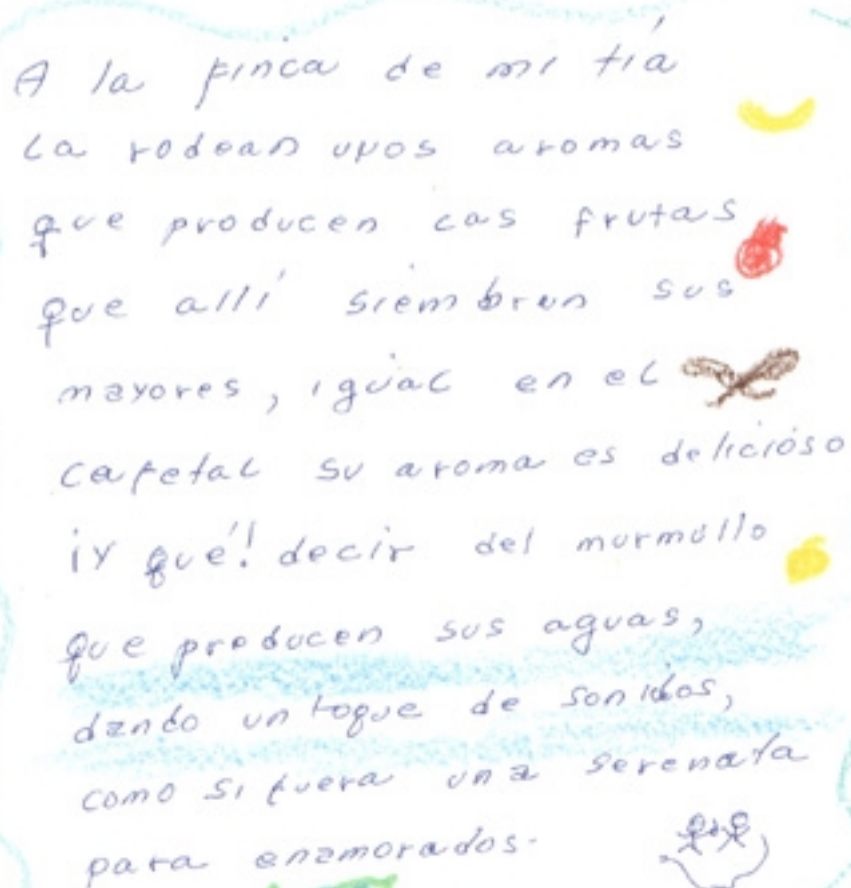 A la finca de mi tía
La rodean unos aromas
que producen las frutas
que allí siembran sus
mayores, igual en el
cafetal su aroma es delicioso
¡Y qué! decir del murmullo
que producen sus aguas,
dando un toque de sonidos,
como si fuera una serenata
para enamorados.